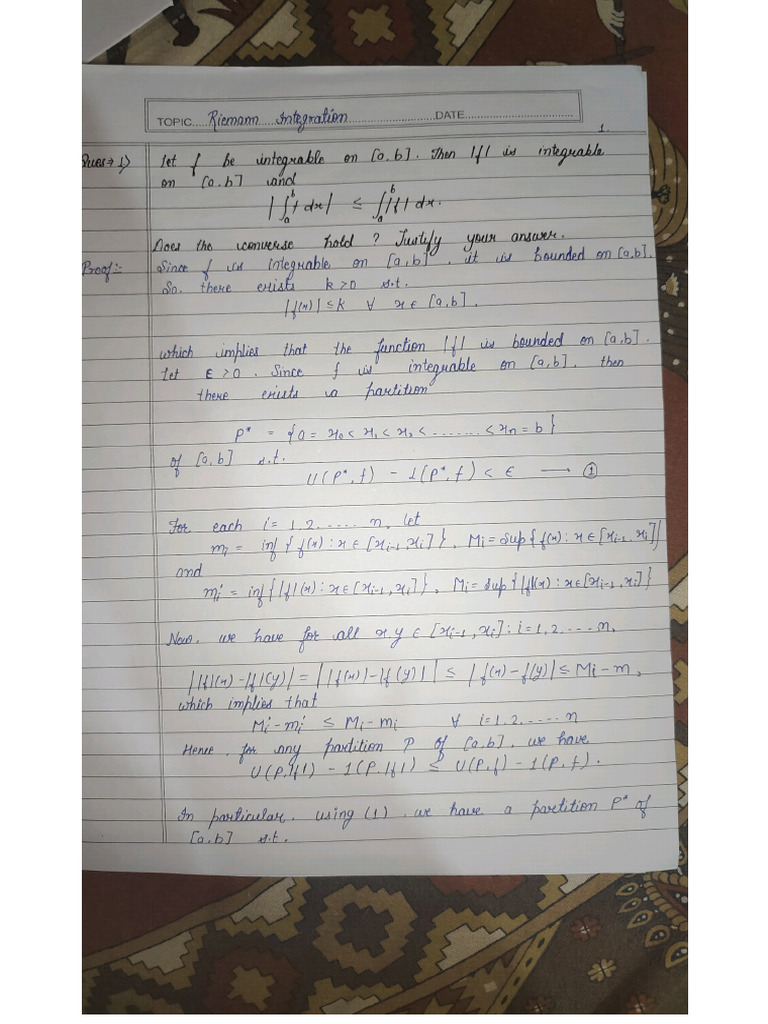 TOPIC.....Riemann Integration.....DATE.....
1.
Ques→ 1) let f be integrable on [a,b]. Then |f| is integrable
on [a,b] and
|∫ₐᵇ f dx| ≤ ∫ₐᵇ |f| dx.
Does the converse hold? Justify your answer.
Proof:- Since f is integrable on [a,b], it is bounded on [a,b].
So, there exists k>0 s.t.
|f(x)| ≤ k ∀ x ∈ [a,b].
which implies that the function |f| is bounded on [a,b].
let ε>0. Since f is integrable on [a,b], then
there exists a partition
P* = {a = x₀ < x₁ < x₂ < ........ < xn = b}
of [a,b] s.t.
U(P*, f) - L(P*, f) < ε ⟶ ①
For each i = 1,2.....n, let
mi = inf {f(x) : x ∈ [xi-1, xi]}, Mi = sup{f(x) : x ∈ [xi-1, xi]}
and
mi' = inf{|f|(x) : x ∈ [xi-1, xi]}, Mi = sup{|f|(x) : x ∈ [xi-1, xi]}
Now, we have for all x,y ∈ [xi-1, xi]; i = 1,2....n,
||f|(x) - |f|(y)| = ||f(x)| - |f(y)|| ≤ |f(x) - f(y)| ≤ Mi - m,
which implies that
Mi' - mi' ≤ Mi - mi ∀ i = 1,2.....n
Hence, for any partition P of [a,b], we have
U(P,|f|) - L(P,|f|) ≤ U(P,f) - L(P,f).
In particular, using (1), we have a partition P* of
[a,b] s.t.